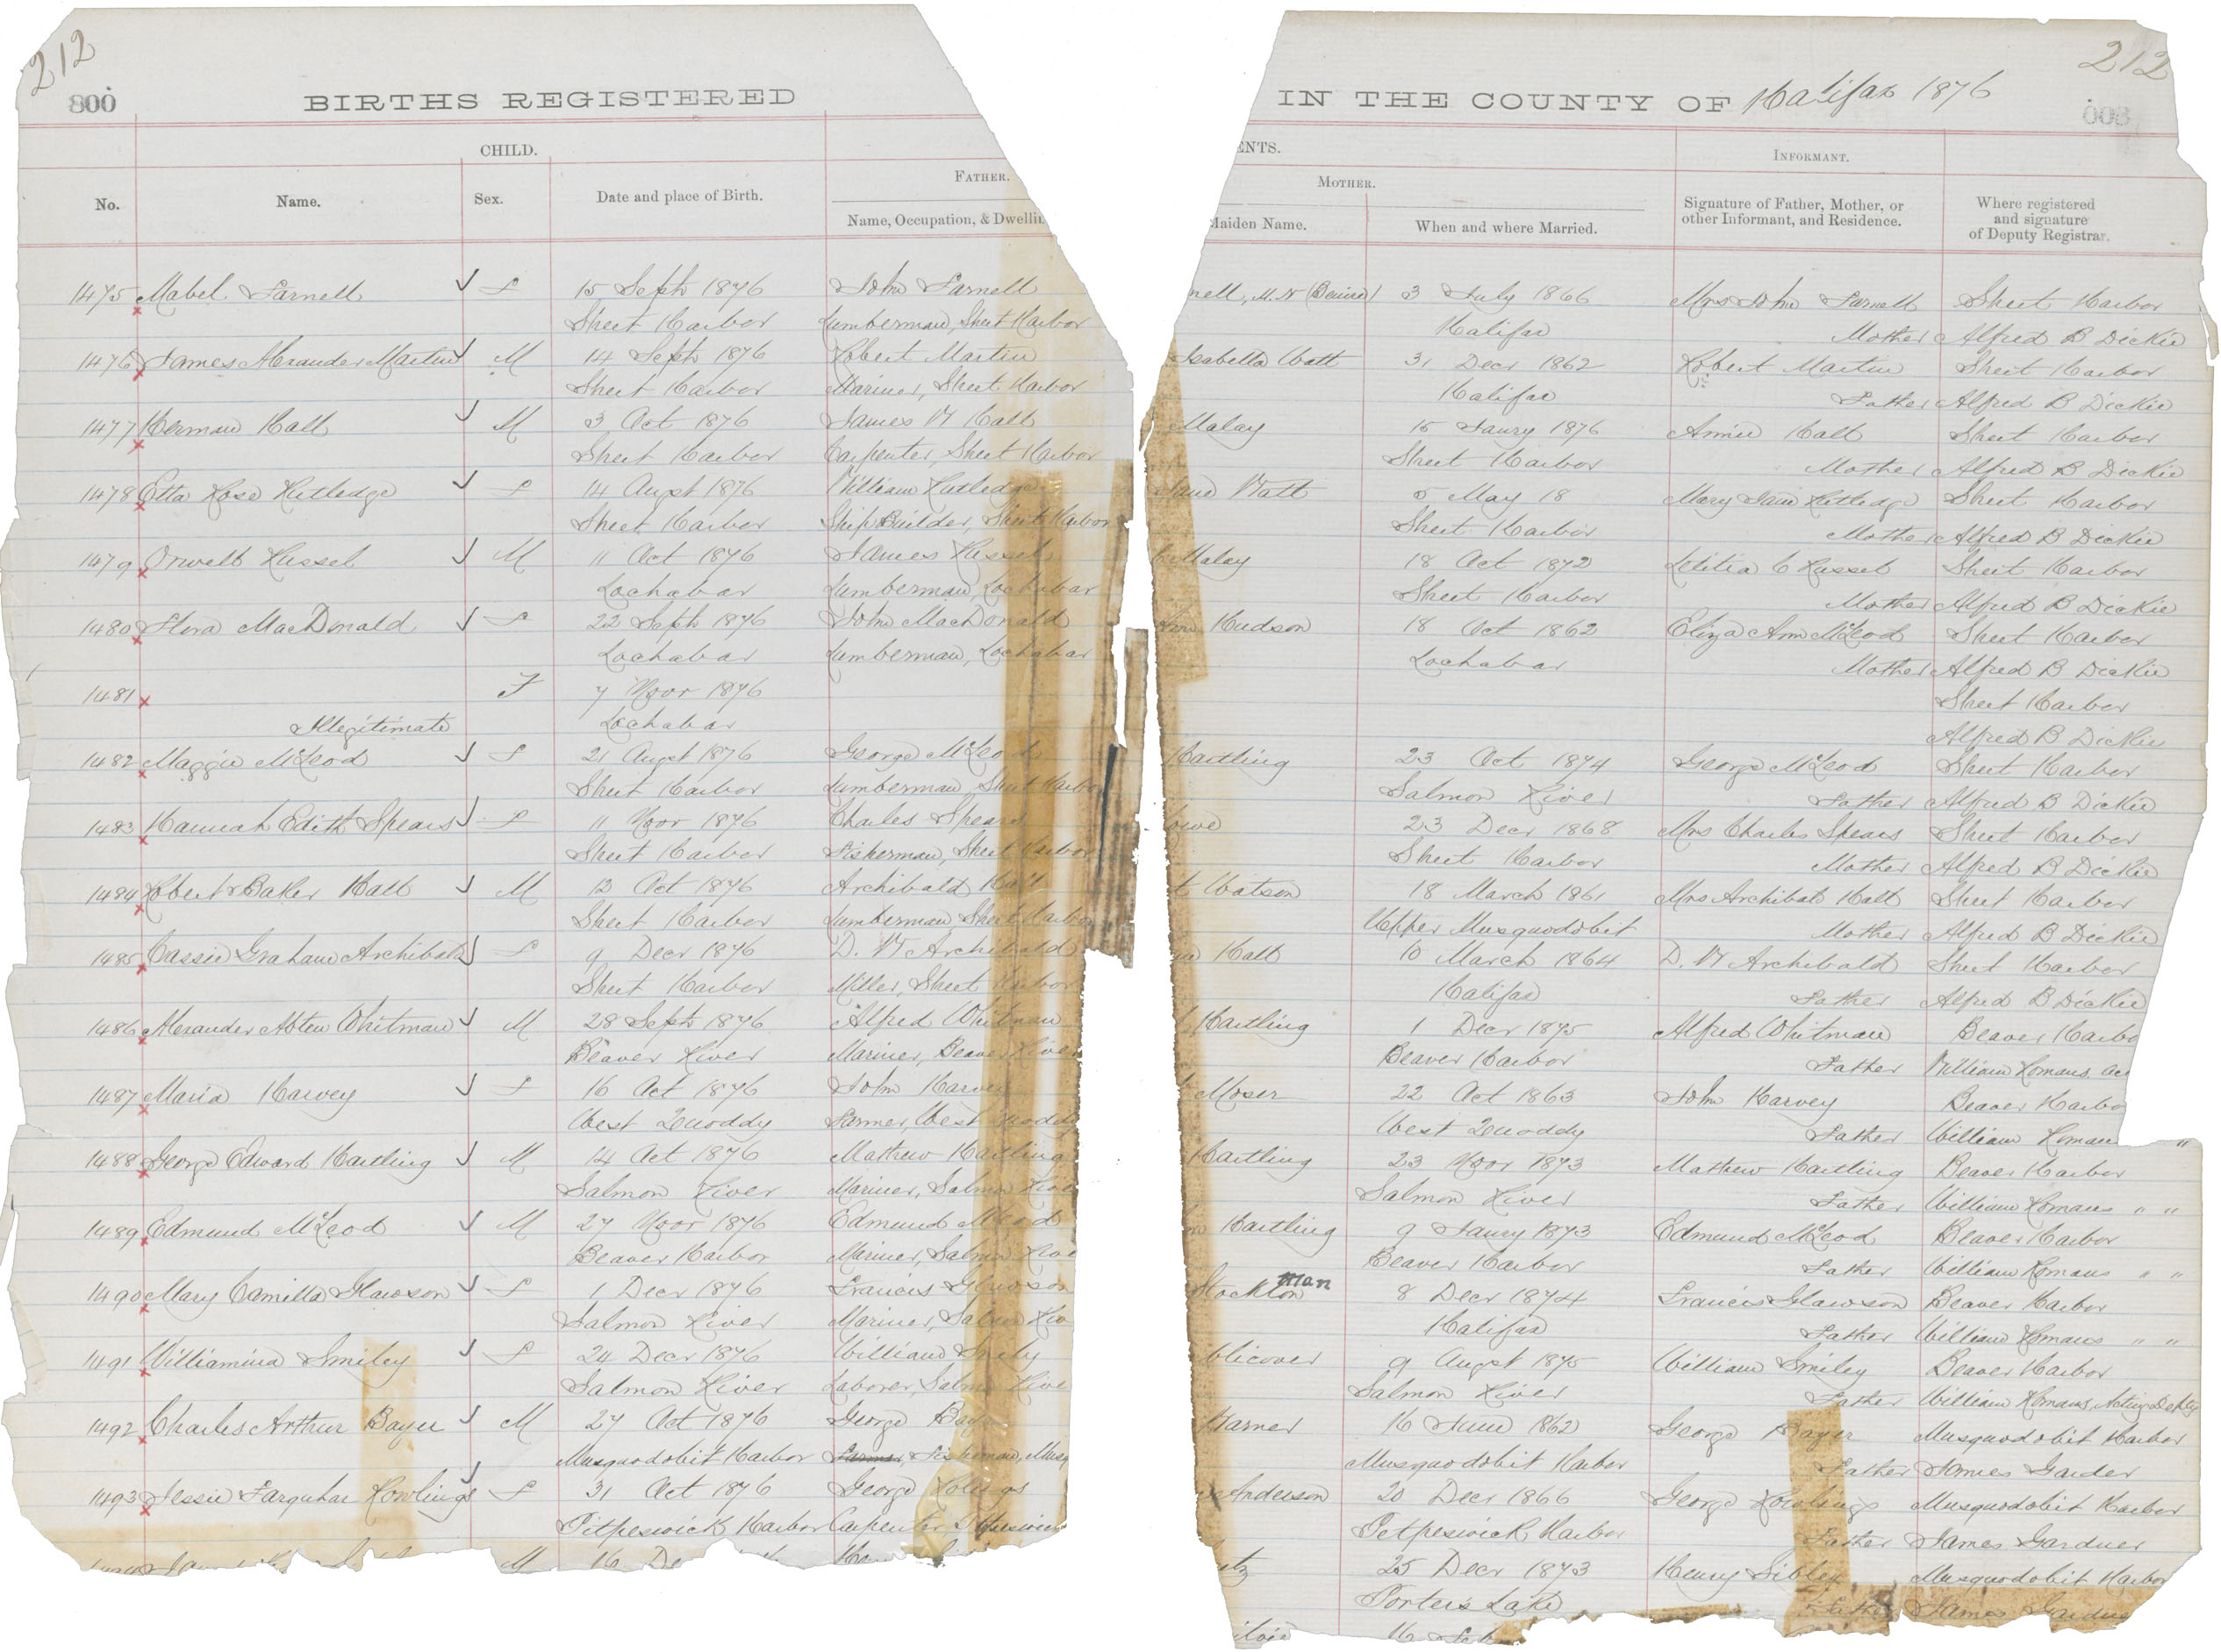 212
212
800
BIRTHS REGISTERED
IN THE COUNTY OF Halifax 1876
CHILD.
ENTS.
INFORMANT.
FATHER.
MOTHER.
No.
Name.
Sex.
Date and place of Birth.
Name, Occupation, & Dwellin
Maiden Name.
When and where Married.
Signature of Father, Mother, or
other Informant, and Residence.
Where registered
and signature
of Deputy Registrar.
1475 Mabel Farnell f 15 Septr 1876 John Farnell
nell, M.N (Beaird) 3 July 1866 Mrs John Farnell Sheet Harbor
Sheet Harbor Lumberman, Sheet Harbor
Halifax Mother Alfred B Dickie
1476 James Alexander Martin M 14 Septr 1876 Robert Martin
Isabella Watt 31 Decr 1862 Robert Martin Sheet Harbor
Sheet Harbor Mariner, Sheet Harbor
Halifax Father Alfred B Dickie
1477 Herman Hall M 3 Oct 1876 James W Hall
Malay 15 Jany 1876 Annie Hall Sheet Harbor
Sheet Harbor Carpenter, Sheet Harbor
Sheet Harbor Mother Alfred B Dickie
1478 Etta Rose Rutledge f 14 Augst 1876 William Rutledge
Jane Watt 5 May 18 Mary Jane Rutledge Sheet Harbor
Sheet Harbor Ship Builder, Sheet Harbor
Sheet Harbor Mother Alfred B Dickie
1479 Orwell Russel M 11 Oct 1876 James Russel
Malay 18 Oct 1872 Letitia C Russel Sheet Harbor
Lochabar Lumberman, Lochabar
Sheet Harbor Mother Alfred B Dickie
1480 Flora MacDonald f 22 Septr 1876 John MacDonald
Ann Hudson 18 Oct 1862 Eliza Ann McLeod Sheet Harbor
Lochabar Lumberman, Lochabar
Lochabar Mother Alfred B Dickie
1481 F 7 Novr 1876
Sheet Harbor
Illegitimate Lochabar
Alfred B Dickie
1482 Maggie McLeod f 21 Augst 1876 George McLeod
Hartling 23 Oct 1874 George McLeod Sheet Harbor
Sheet Harbor Lumberman, Sheet Harbor
Salmon River Father Alfred B Dickie
1483 Hannah Edith Spears f 11 Novr 1876 Charles Spears
owe 23 Decr 1868 Mrs Charles Spears Sheet Harbor
Sheet Harbor Fisherman, Sheet Harbor
Sheet Harbor Mother Alfred B Dickie
1484 Robert Baker Hall M 12 Oct 1876 Archibald Hall
t Watson 18 March 1861 Mrs Archibald Hall Sheet Harbor
Sheet Harbor Lumberman, Sheet Harbor
Upper Musquodobit Mother Alfred B Dickie
1485 Cassie Graham Archibald f 9 Decr 1876 D. W Archibald
Hall 10 March 1864 D. W Archibald Sheet Harbor
Sheet Harbor Miller, Sheet Harbor
Halifax Father Alfred B Dickie
1486 Alexander Abten Whitman M 28 Septr 1876 Alfred Whitman
Hartling 1 Decr 1875 Alfred Whitman Beaver Harbo
Beaver River Mariner, Beaver River
Beaver Harbor Father William Romans, ac
1487 Maria Harvey f 16 Oct 1876 John Harvey
Moser 22 Oct 1863 John Harvey Beaver Harbo
West Quoddy Farmer, West Quoddy
West Quoddy Father William Romans "
1488 George Edward Hartling M 14 Oct 1876 Mathew Hartling
Hartling 23 Novr 1873 Mathew Hartling Beaver Harbor
Salmon River Mariner, Salmon River
Salmon River Father William Romans " "
1489 Edmund McLeod M 27 Novr 1876 Edmund McLeod
Hartling 9 Jany 1873 Edmund McLeod Beaver Harbor
Beaver Harbor Mariner, Salmon Rive
Beaver Harbor Father William Romans " "
man
1490 Mary Camilla Glawson f 1 Decr 1876 Francis Glawson
Stockton 8 Decr 1874 Francis Glawson Beaver Harbor
Salmon River Mariner, Salmon Riv
Halifax Father William Romans " "
1491 Williamina Smiley f 24 Decr 1876 William Smily
9 Augst 1875 William Smiley Beaver Harbor
Salmon River Laborer, Salmon Rive
Salmon River Father William Romans, Acting Depty
1492 Charles Arthur Bayer M 27 Oct 1876 George Bayer
Harner 16 June 1862 George Bayer Musquodobit Harbor
Musquodobit Harbor Farmer Fisherman, Musq
Musquodobit Harbor Father James Garder
1493 Jessie Farquhar Rowlings f 31 Oct 1876 George Rolings
Anderson 20 Decr 1866 George Rowlings Musquodobit Harbor
Pitpeswick Harbor Carpenter,
Petpeswick Harbor Father James Gardner
M 16 De
25 Decr 1873 Henry Sibley Musquodobit Harbor
Porters Lake Father James Gardner
16 Feb